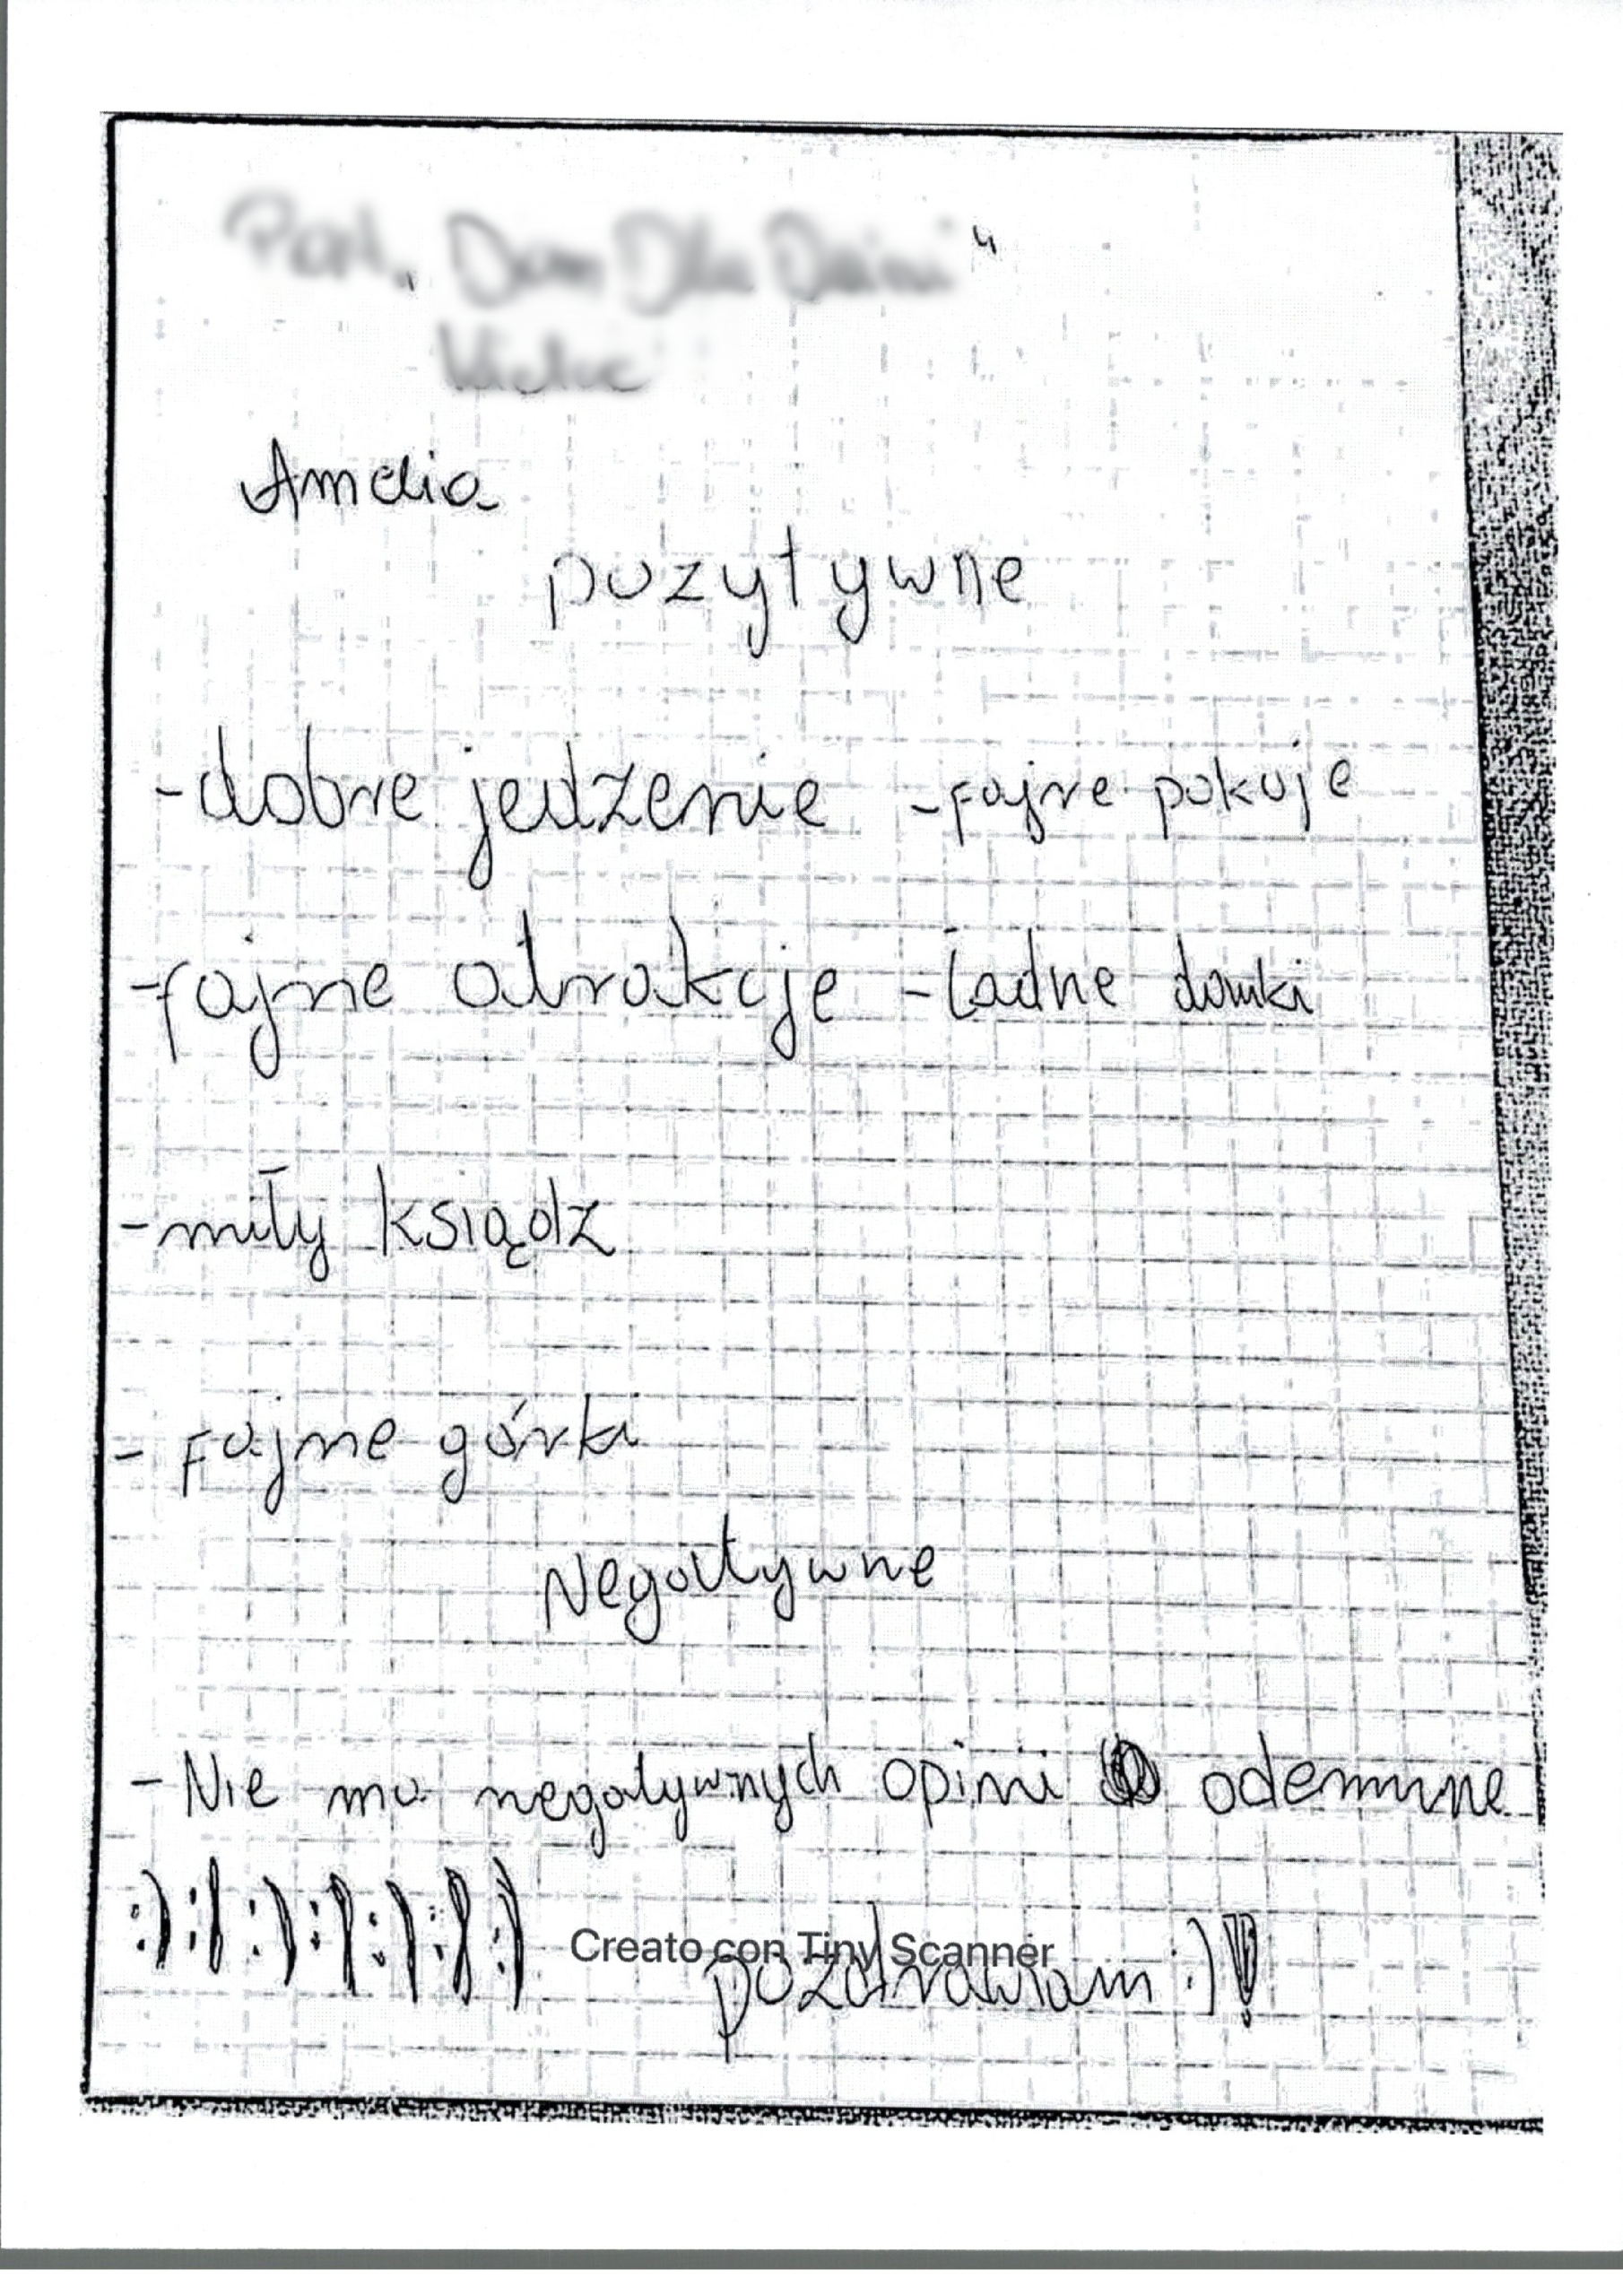 Amelia
pozytywne
-dobre jedzenie -fajne pokoje
-fajne atrakcje -ładne domki
-miły ksiądz
- fajne górki
Negatywne
- Nie ma negatywnych opini odemnne
:) :) :) :) :) :) :) pozdrawiam :)!
Creato con Tiny Scanner